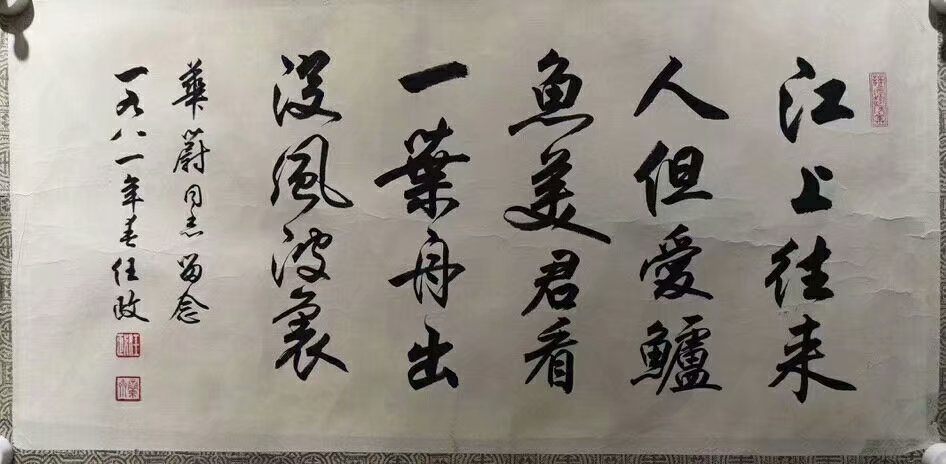 江上往来
人但愛鱸
魚美君看
一葉舟出
没風波裏
華蔚同志留念
一九八一年春任政